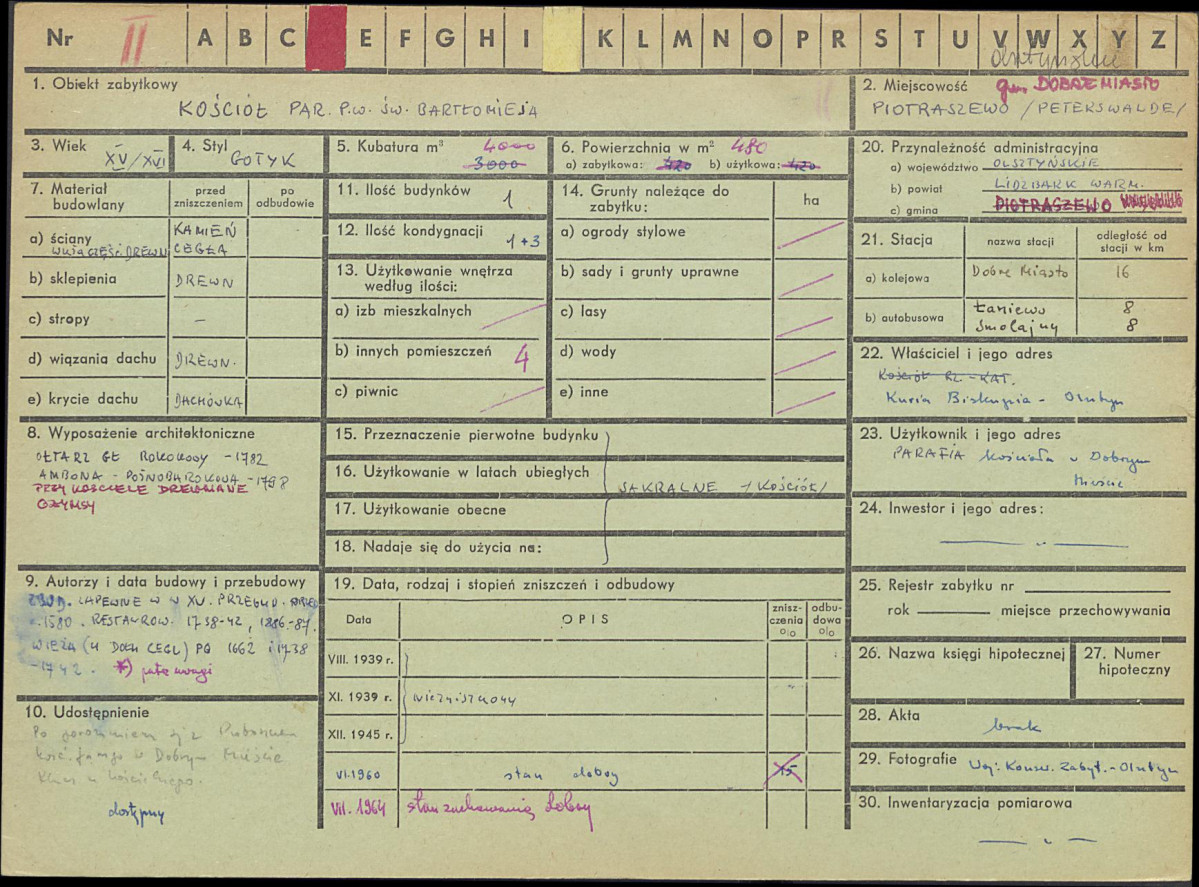 Nr II A B C E F G H I K L M N O P R S T U V W X Y Z
olsztyńskie
1. Obiekt zabytkowy
KOŚCIÓŁ PAR. P.W. ŚW. BARTŁOMIEJA
2. Miejscowość gm. DOBRE MIASTO
PIOTRASZEWO /PETERSWALDE/
3. Wiek XV/XVI
4. Styl GOTYK
5. Kubatura m³ 4000
3000
6. Powierzchnia w m² 480
a) zabytkowa: 420 b) użytkowa: 420
7. Materiał budowlany
przed zniszczeniem
po odbudowie
a) ściany KAMIEŃ
CEGŁA
b) sklepienia DREWN
c) stropy –
d) wiązania dachu DREWN.
e) krycie dachu DACHÓWKA
8. Wyposażenie architektoniczne
OŁTARZ GŁ ROKOKOWY – 1782
AMBONA – PÓŹNOBAROKOWA – 1798
PRZY KOŚCIELE DREWNIANE
GZYMSY
9. Autorzy i data budowy i przebudowy
ZBUD. ZAPEWNE W XV. PRZEBUD.
1580. RESTAUROW. 1738-42, 1886-87.
WIEŻA (U DOŁU CEGL) PO 1662 i 1738
– 1742. *) patrz uwagi
10. Udostępnienie
Po porozumieniu się z Proboszczem
w Dobrym Mieście
dostępny
11. Ilość budynków 1
12. Ilość kondygnacji 1+3
13. Użytkowanie wnętrza
według ilości:
a) izb mieszkalnych
b) innych pomieszczeń 4
c) piwnic
14. Grunty należące do
zabytku:
ha
a) ogrody stylowe
b) sady i grunty uprawne
c) lasy
d) wody
e) inne
15. Przeznaczenie pierwotne budynku
16. Użytkowanie w latach ubiegłych
SAKRALNE /KOŚCIÓŁ/
17. Użytkowanie obecne
18. Nadaje się do użycia na:
19. Data, rodzaj i stopień zniszczeń i odbudowy
Data
OPIS
znisz-
czenia
%
odbu-
dowa
%
VIII. 1939 r.
XI. 1939 r. niezniszczony
XII. 1945 r.
VI.1960 stan dobry 15
VII. 1964 stan zachowania dobry
20. Przynależność administracyjna
a) województwo OLSZTYŃSKIE
b) powiat LIDZBARK WARM.
c) gmina PIOTRASZEWO
21. Stacja
nazwa stacji
odległość od
stacji w km
a) kolejowa Dobre Miasto 16
b) autobusowa Łaniewo 8
Smolajny 8
22. Właściciel i jego adres
Kościół RZ.-KAT.
Kuria Biskupia – Olsztyn
23. Użytkownik i jego adres
PARAFIA kościoła w Dobrym
Mieście
24. Inwestor i jego adres:
— „ —
25. Rejestr zabytku nr
rok miejsce przechowywania
26. Nazwa księgi hipotecznej
27. Numer
hipoteczny
28. Akta
brak
29. Fotografie Woj. Konserw. Zabyt. – Olsztyn
30. Inwentaryzacja pomiarowa
— „ —